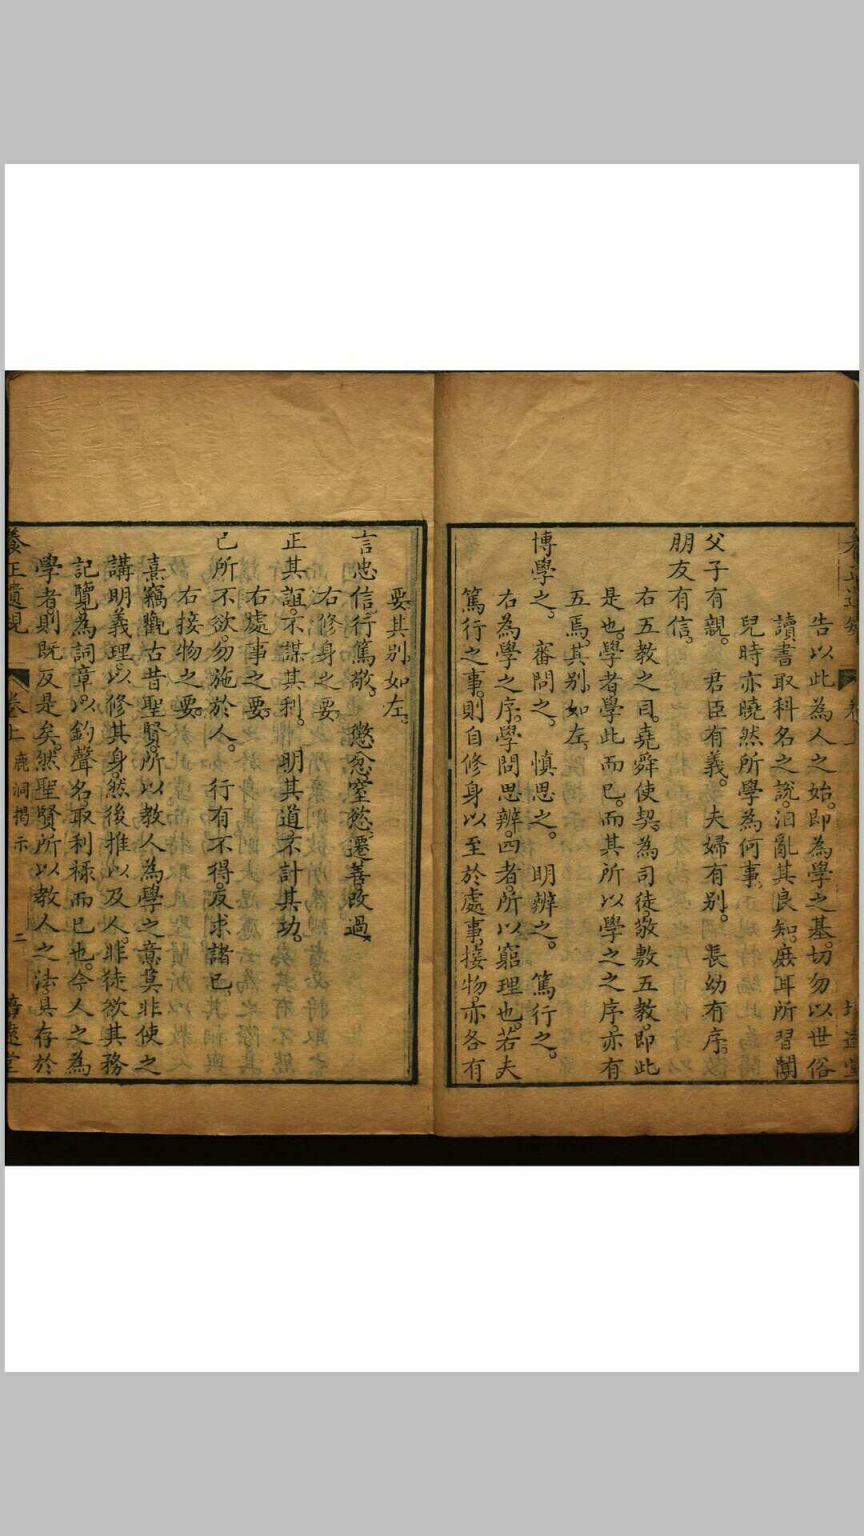 告以此為人之始。即為學之基。切勿以世俗
讀書取科名之說。汨亂其良知。庶耳所習聞
兒時亦曉然所學為何事。
父子有親。君臣有義。夫婦有別。長幼有序。
朋友有信。
右五教之目。堯舜使契為司徒。敬敷五教。即此
是也。學者學此而已。而其所以學之之序。亦有
五焉。其別如左。
博學之。審問之。慎思之。明辨之。篤行之。
右為學之序。學問思辨。四者。所以窮理也。若夫
篤行之事。則自修身以至於處事。接物。亦各有
要其別如左。
言忠信。行篤敬。懲忿窒慾。遷善改過。
右修身之要
正其誼。不謀其利。明其道。不計其功。
右處事之要。
己所不欲。勿施於人。行有不得。反求諸己。
右接物之要。
熹竊觀古昔聖賢。所以教人為學之意。莫非使之
講明義理。以修其身。然後推以及人。非徒欲其務
記覽為詞章。以釣聲名。取利祿而已也。今人之為
學者。則既反是矣。然聖賢所以教人之法。具存於
養正遺規 卷上 鹿洞揭示 二 培遠堂